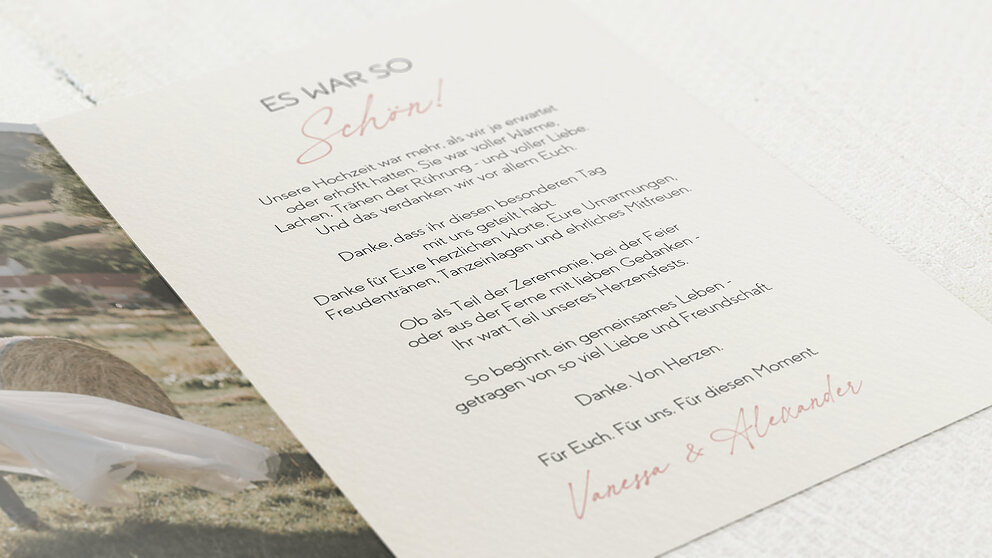 ES WAR SO
Schön!
Unsere Hochzeit war mehr, als wir je erwartet
oder erhofft hatten. Sie war voller Wärme,
Lachen, Tränen der Rührung - und voller Liebe.
Und das verdanken wir vor allem Euch.
Danke, dass ihr diesen besonderen Tag
mit uns geteilt habt.
Danke für Eure herzlichen Worte, Eure Umarmungen,
Freudentränen, Tanzeinlagen und ehrliches Mitfreuen.
Ob als Teil der Zeremonie, bei der Feier
oder aus der Ferne mit lieben Gedanken -
Ihr wart Teil unseres Herzensfests.
So beginnt ein gemeinsames Leben -
getragen von so viel Liebe und Freundschaft.
Danke. Von Herzen.
Für Euch. Für uns. Für diesen Moment
Vanessa & Alexander